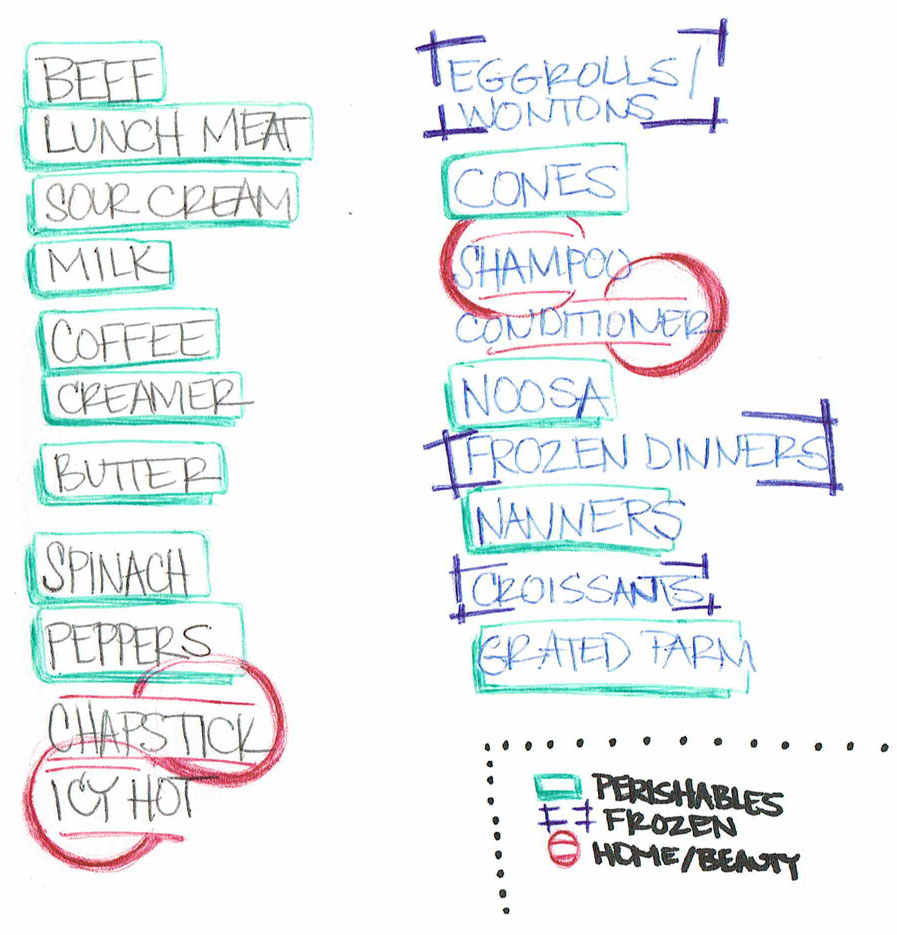 BEEF
LUNCH MEAT
SOUR CREAM
MILK
COFFEE
CREAMER
BUTTER
SPINACH
PEPPERS
CHAPSTICK
ICY HOT
EGGROLLS/
WONTONS
CONES
SHAMPOO
CONDITIONER
NOOSA
FROZEN DINNERS
NANNERS
CROISSANTS
GRATED PARM
PERISHABLES
FROZEN
HOME/BEAUTY